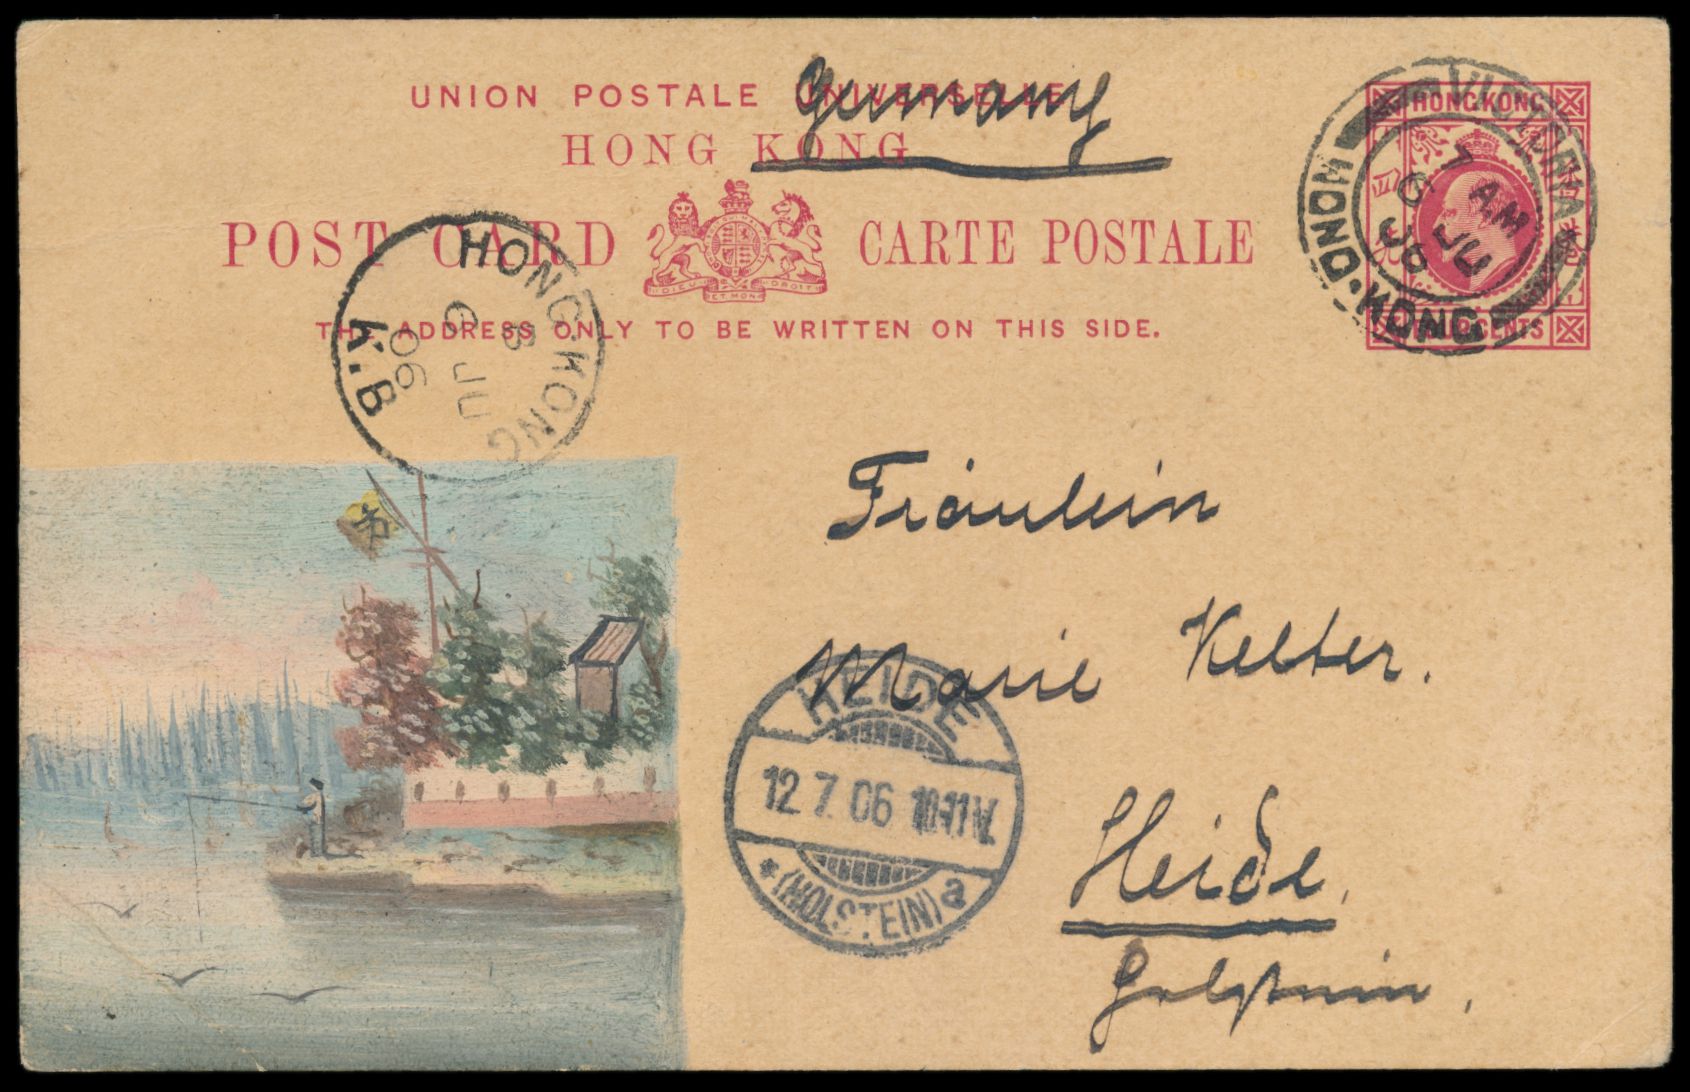 UNION POSTALE UNIVERSELLE
Germany
HONG KONG
POST CARD CARTE POSTALE
DIEU ET MON DROIT
THE ADDRESS ONLY TO BE WRITTEN ON THIS SIDE.
HONG KONG
FOUR CENTS
VICTORIA
7 AM
6 JU
06
HONG·KONG
HONG·KONG
6 JU
06
K.B
Fräulein
Marie Kelter.
Heide,
Holstein,
HEIDE
12 7 06 10-11 V.
* (HOLSTEIN) a